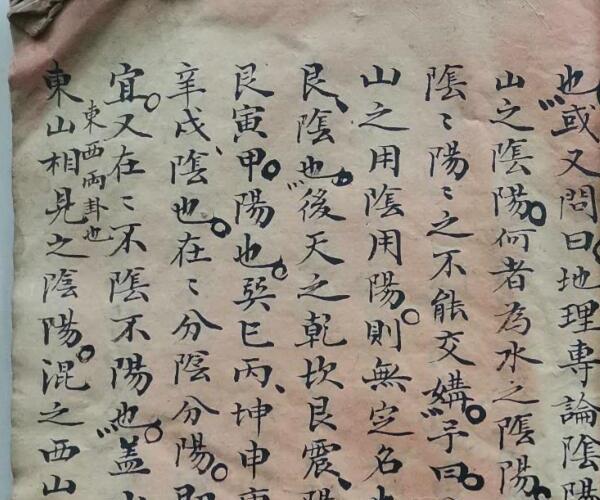 也或又問曰地理專論陰陽
山之陰陽何者為水之陰陽
陰〻陽〻之不能交媾予曰
山之用陰用陽則無定名
艮陰也後天之乾坎艮震陽
艮寅甲陽也巽巳丙坤申庚
辛戌陰也在〻分陰分陽
宜又在〻不陰不陽也蓋
東西兩卦也
東山相見之陰陽混之西山